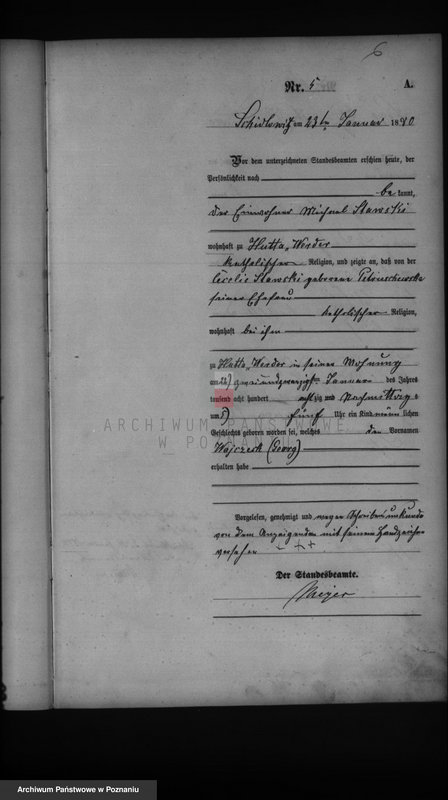 6
Nr. 5
A.
am 23ten Januar 1880
Vor dem unterzeichneten Standesbeamten erschien heute, der
Persönlichkeit nach
be kannt,
der Einwohner Michael Stawski
wohnhaft zu Hutta Werder
katholischer Religion, und zeigte an, daß von der
Stawski geborene
seiner Ehefrau
katholischer Religion,
wohnhaft bei ihm
zu Hutta Werder in seiner Wohnung
am zweiundzwanzigsten Januar des Jahres
tausend acht hundert achtzig und Nachmittags
um fünf Uhr ein Kind männlichen
Geschlechts geboren worden sei, welches den Vornamen
(Georg)
erhalten habe
Vorgelesen, genehmigt und wegen Schreibensunkunde
von dem Anzeigenden mit seinem Handzeichen
versehen
+++
Der Standesbeamte.
Meyer
ARCHIWUM PAŃSTWOWE
W POZNANIU
Archiwum Państwowe w Poznaniu